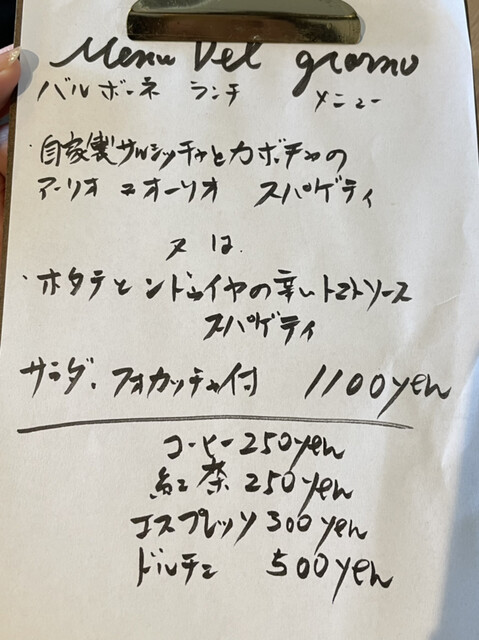 Menu Del giorno
バルボーネ ランチ メニュー
・自家製サルシッチャとカボチャの
アーリオ エ オーリオ スパゲティ
又は.
・ホタテとンドゥイヤの辛いトマトソース
スパゲティ
サラダ、フォカッチャ付 1100yen
コーヒー 250yen
紅茶 250yen
エスプレッソ 300yen
ドルチェ 500yen